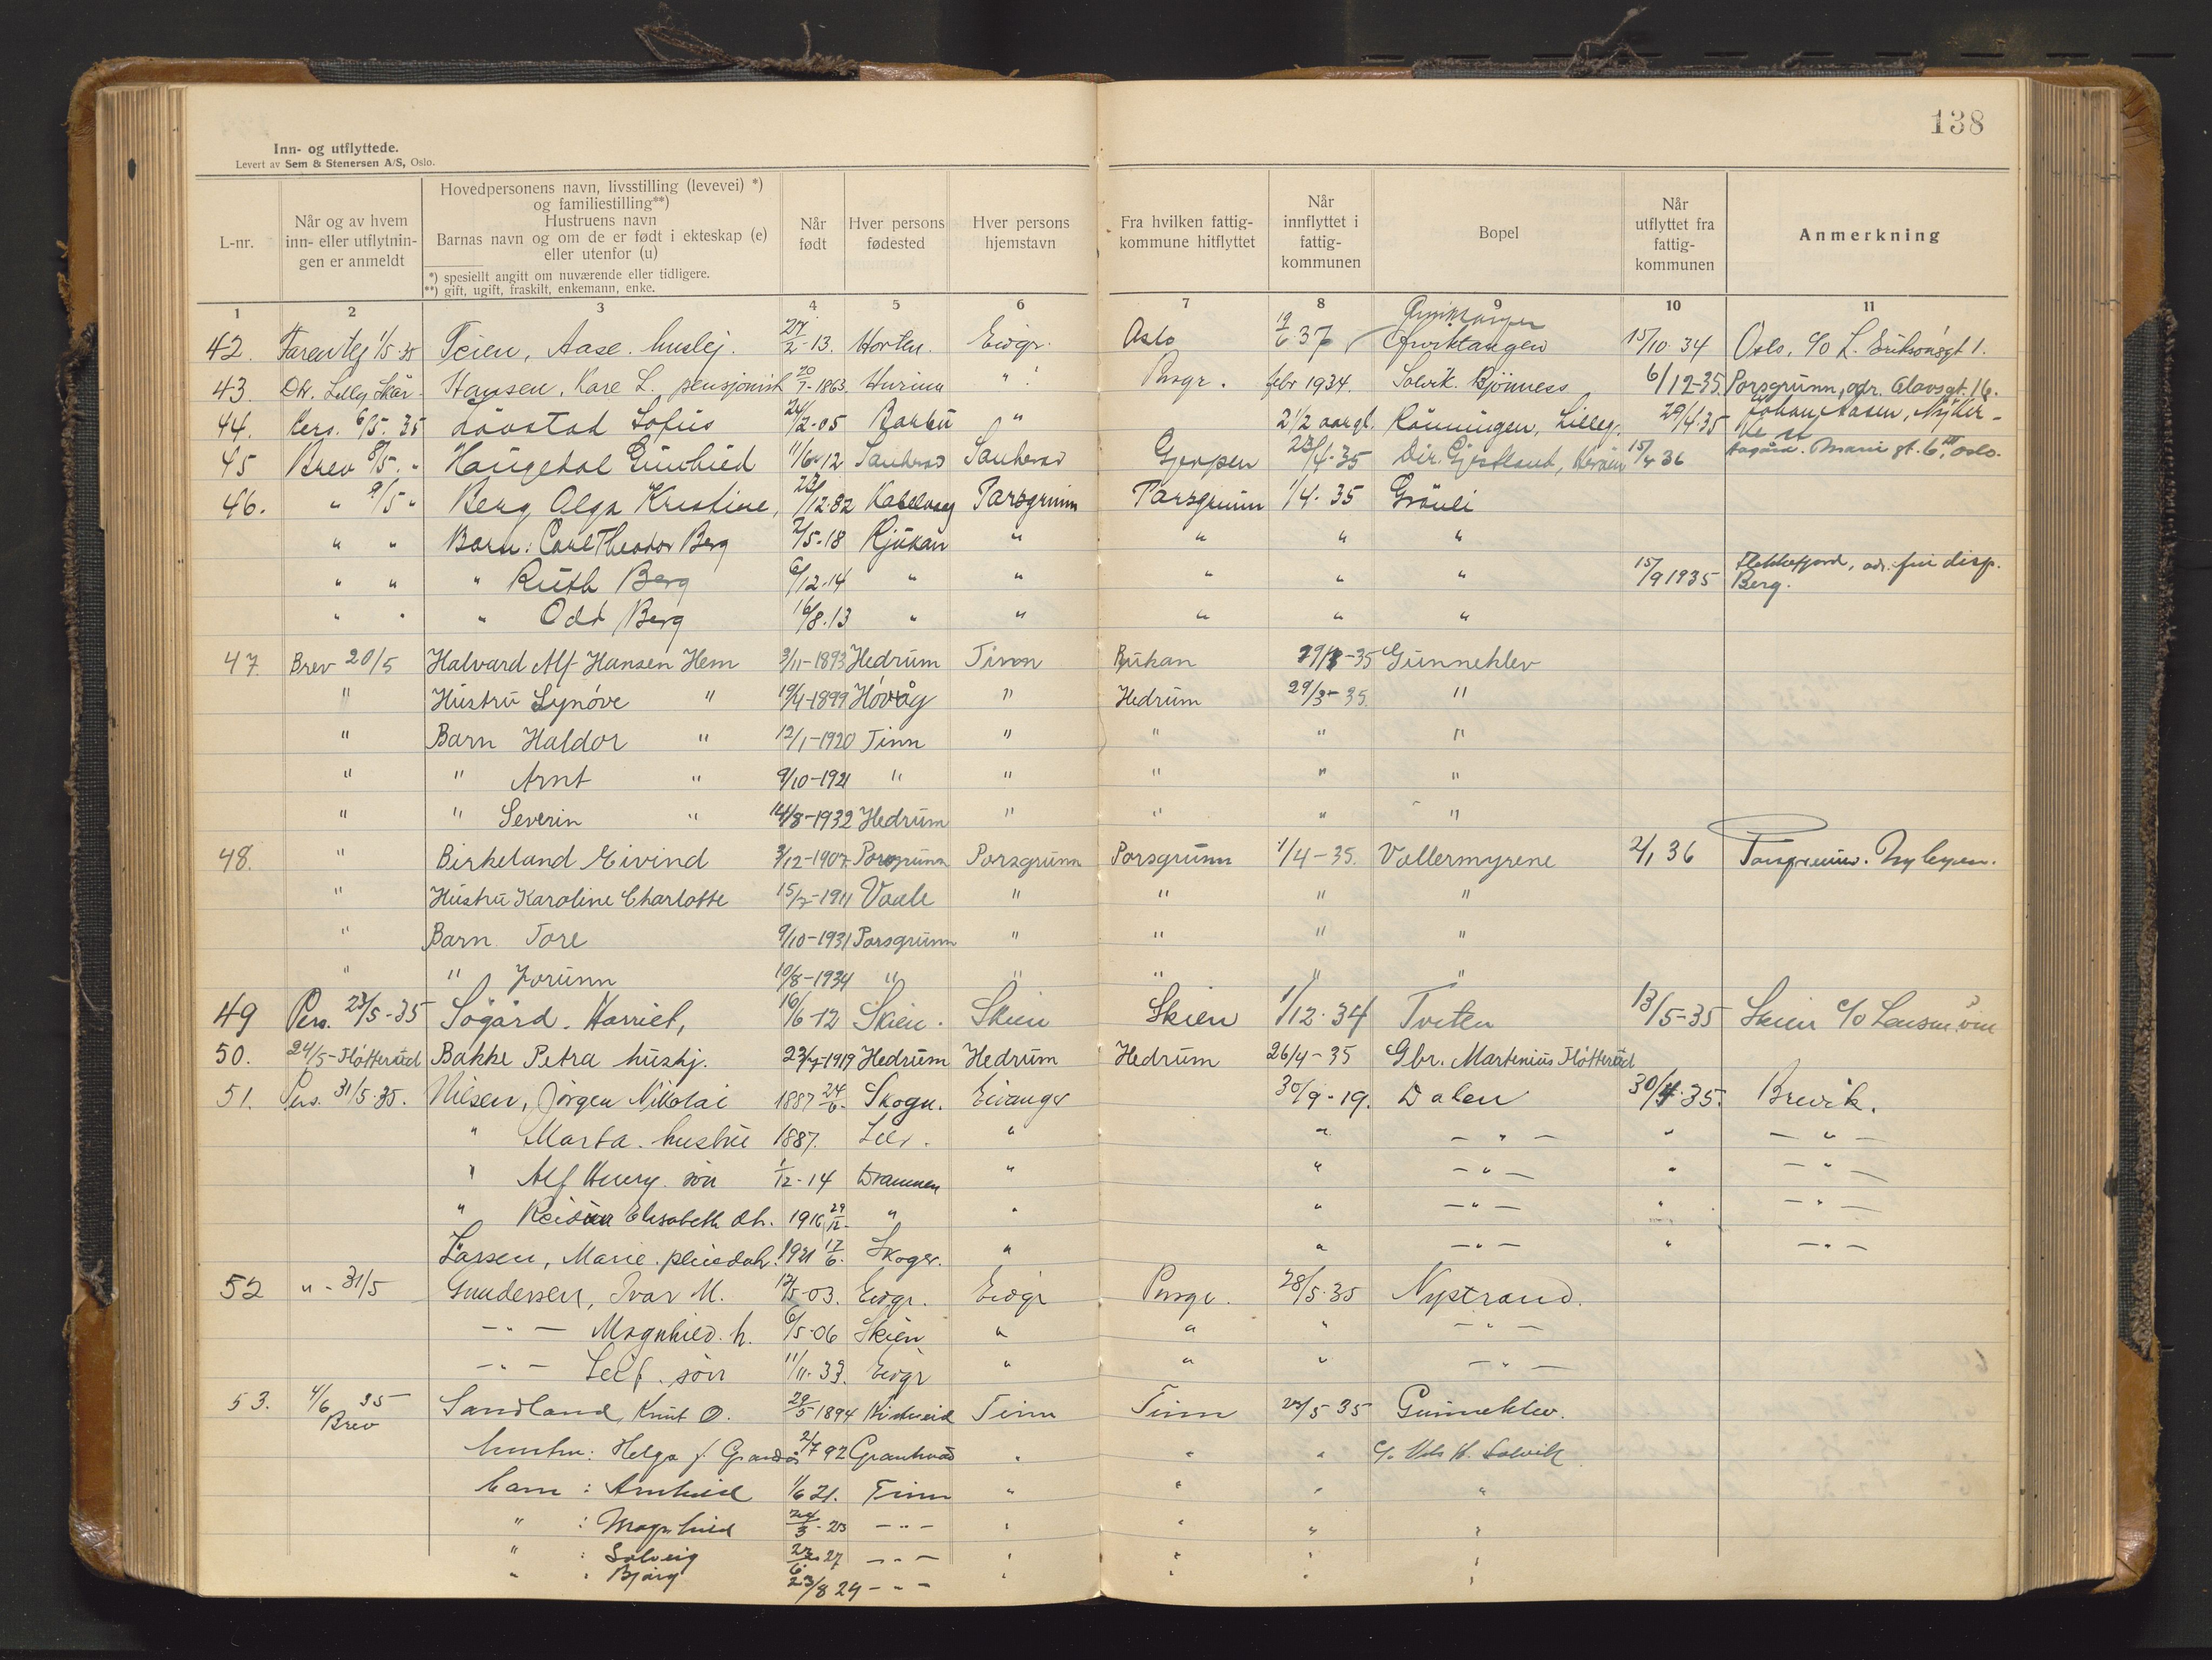 138
Inn- og utflyttede.
Levert av Sem & Stenersen A/S, Oslo.
L-nr. Når og av hvem inn- eller utflytningen er anmeldt Hovedpersonens navn, livsstilling (levevei) *) og familiestilling**) Hustruens navn Barnas navn og om de er født i ekteskap (e) eller utenfor (u) *) spesiellt angitt om nuværende eller tidligere. **) gift, ugift, fraskilt, enkemann, enke. Når født Hver persons fødested Hver persons hjemstavn Fra hvilken fattigkommune hitflyttet Når innflyttet i fattigkommunen Bopel Når utflyttet fra fattigkommunen Anmerkning
1 2 3 4 5 6 7 8 9 10 11
42. Teien, Aase. huslej. 27/2-13. Horten. Eidgr. Oslo 19/6 37 15/10 34 Oslo, c/o L. Eriksönsgt 1.
43. Hansen, Kare L. pensjonist 20/7-1863. Hurum " Prsgr. febr 1934. Solvik. Bjönness 6/12-35. Porsgrunn, adr. Olavsgt. 16.
44. Pers. 6/5. 35 Lövstad Sofus 24/2-05 Barbu " 2 1/2 aar gl. Rönningen, Lilleg. 29/4.35 Johan Aasen,
45 Brev 8/5. " Haugedal Gunhild 11/6-12 Sauherad Sauherad Gjerpen 23/4-35 Dir. Gjestland, Heröen 15/4 36 Aagård. Marie gt. 6, Oslo.
46. " 9/5 " Berg Olga Kristine, 23/12-82 Kabelvaag Porsgrunn Porsgrunn 1/4. 35 Gråuli
" " Barn: Carl Theodor Berg 2/5-18 Rjukan " " " "
" " " Ruth Berg 6/12-14 " " " " " 15/9 1935 Flekkefjord, adr. fru disp. Berg.
" " " Odd Berg 16/8.13 " " " " "
47. Brev 20/5 Halvard Alf Hansen Hem 3/11-1893 Hedrum Tinn Rjukan 29/3-35 Gunneklev
" Hustru Synöve " 19/4-1899 Hövåg " Hedrum 29/3-35. "
" Barn Haldor " 12/1-1920 Tinn " " " "
" " Arnt " 9/10-1921 " " " " "
" " Severin " 14/8-1932 Hedrum " " " "
48. " Birkeland Eivind 3/12-1907 Porsgrunn Porsgrunn Porsgrunn 1/4-35. Vallermyrene 2/1 36 Porsgrunn.
" Hustru Karoline Charlotte 15/7-1911 Vaale " " " "
" Barn. Tore 9/10-1931 Porsgrunn " " " "
" " Jorunn 10/8-1934 " " " " "
49 Pers. 23/5-35 Sögård. Harriet, 16/6-12 Skien. Skien Skien 1/12-34 Tveten 13/5-35 Skien c/o
50. 24/5-Flötterud Bakke Petra hushj. 23/7-1919 Hedrum Hedrum Hedrum 26/4-35 Gbr. Martenius Flötterud
51. Pers. 31/5.35. Nilsen, Jörgen Nikolai 1887 24/6. Skogn. Eidanger 30/9-19. Dalen 30/4.35. Brevik.
" Marta. hustru 1887. " " — " — " — " —
" Alf Henry. sön 1/12-14 Drammen " " — " — " — " —
" Reidun Elisabeth dt. 1916 29/12- " " " — " — " — " —
Larsen, Marie. pleiedatt. 1921 17/6. Skoger. " " — " — " — " —
52 " - 31/5 Gundersen, Ivar M. 12/5-03. Eidgr. Eidgr Prsgr. 28/5.35 Nystrand.
— " — Magnhild. h. 6/5-06 Skien " " " — " —
— " — Leif. sön 11/11.33. Eidgr " " " — " —
53. 4/6 35 Brev Sandland, Knut O. 29/5 1894 Tinn Tinn 25/5 35 Gunneklev.
hustru: Helga f. 2/7 92 " " " c/o Nils H. Solvik
barn: Arnhild 1/6 21. Tinn " " " "
" : Magnhild 24/3-23 — " — " " " "
" : Solveig 23/6 27 — " — " " " "
" : Bjärg 23/8 29 — " — " " " "